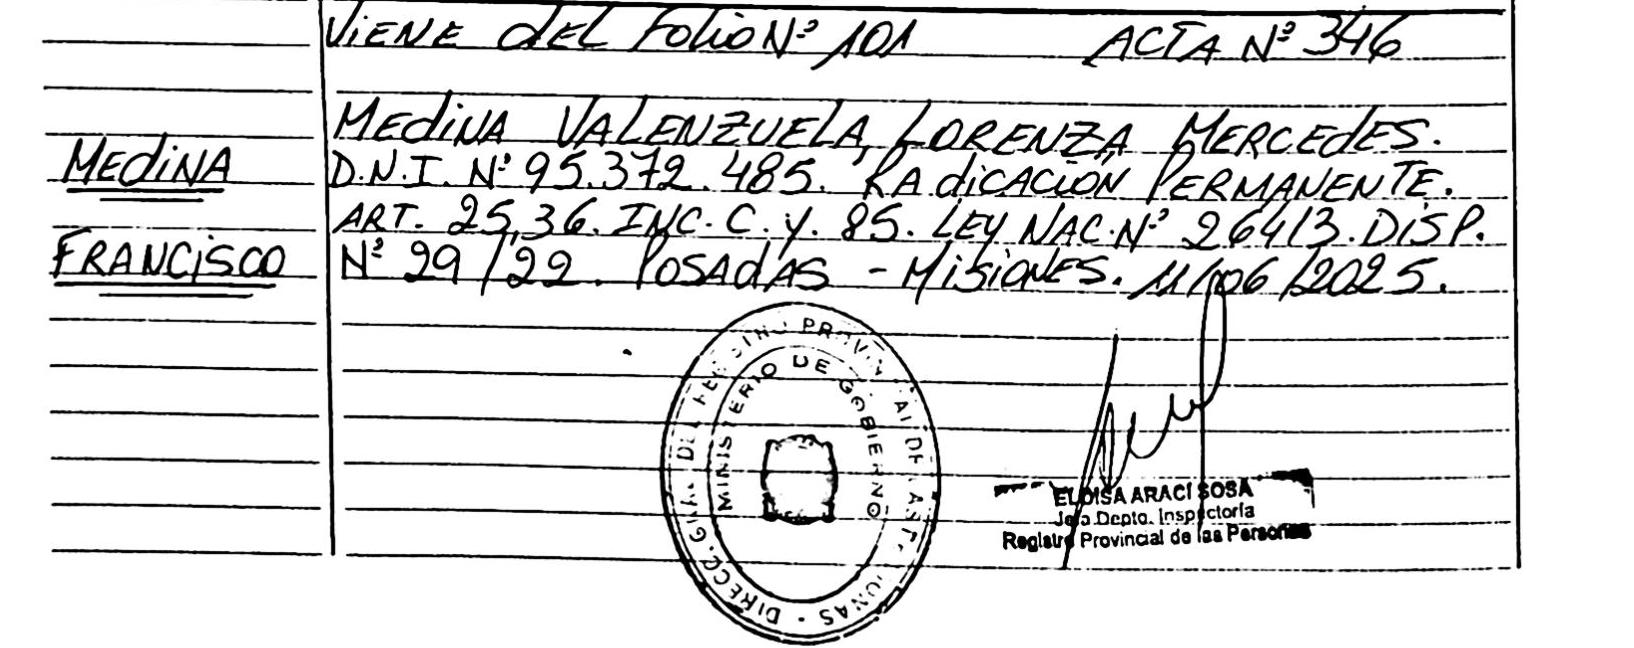 ViENE dEL FoLio Nº 101 ACTA Nº 346
MEdiNA VALENZUELA, LORENZA MERCEdES.
MEdiNA
D.N.I. Nº 95.372.485. RAdiCACiÓN PERMANENTE.
ART. 25,36. INC. C. y. 85. LEY NAC. Nº 26413. DiSP.
FRANCiSCO
Nº 29/22. POSAdAS - MiSiONES. 11/06/2025.
DIRECC. GRAL DEL REGISTRO PROVINCIAL DE LAS PERSONAS -
MINISTERIO DE GOBIERNO
ELOISA ARACI SOSA
Jefa Depto. Inspectoría
Registro Provincial de las Personas